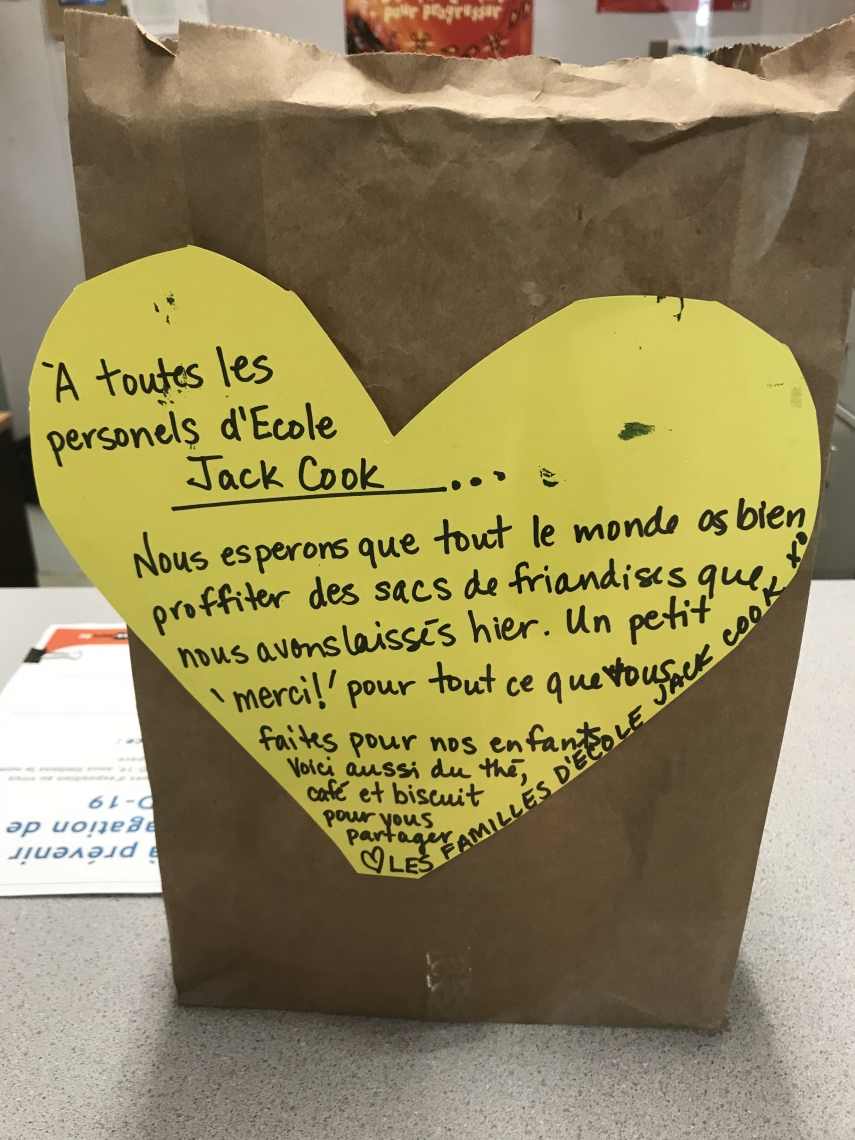 pour progresser
À toutes les
personels d'Ecole
Jack Cook ...
Nous esperons que tout le monde as bien
proffiter des sacs de friandises que
nous avons laissés hier. Un petit
'merci!' pour tout ce que vous
faites pour nos enfants
Voici aussi du thé,
café et biscuit
pour vous
partager
♡ LES FAMILLES D'ECOLE JACK COOK xo
à prévenir
agation de
D-19